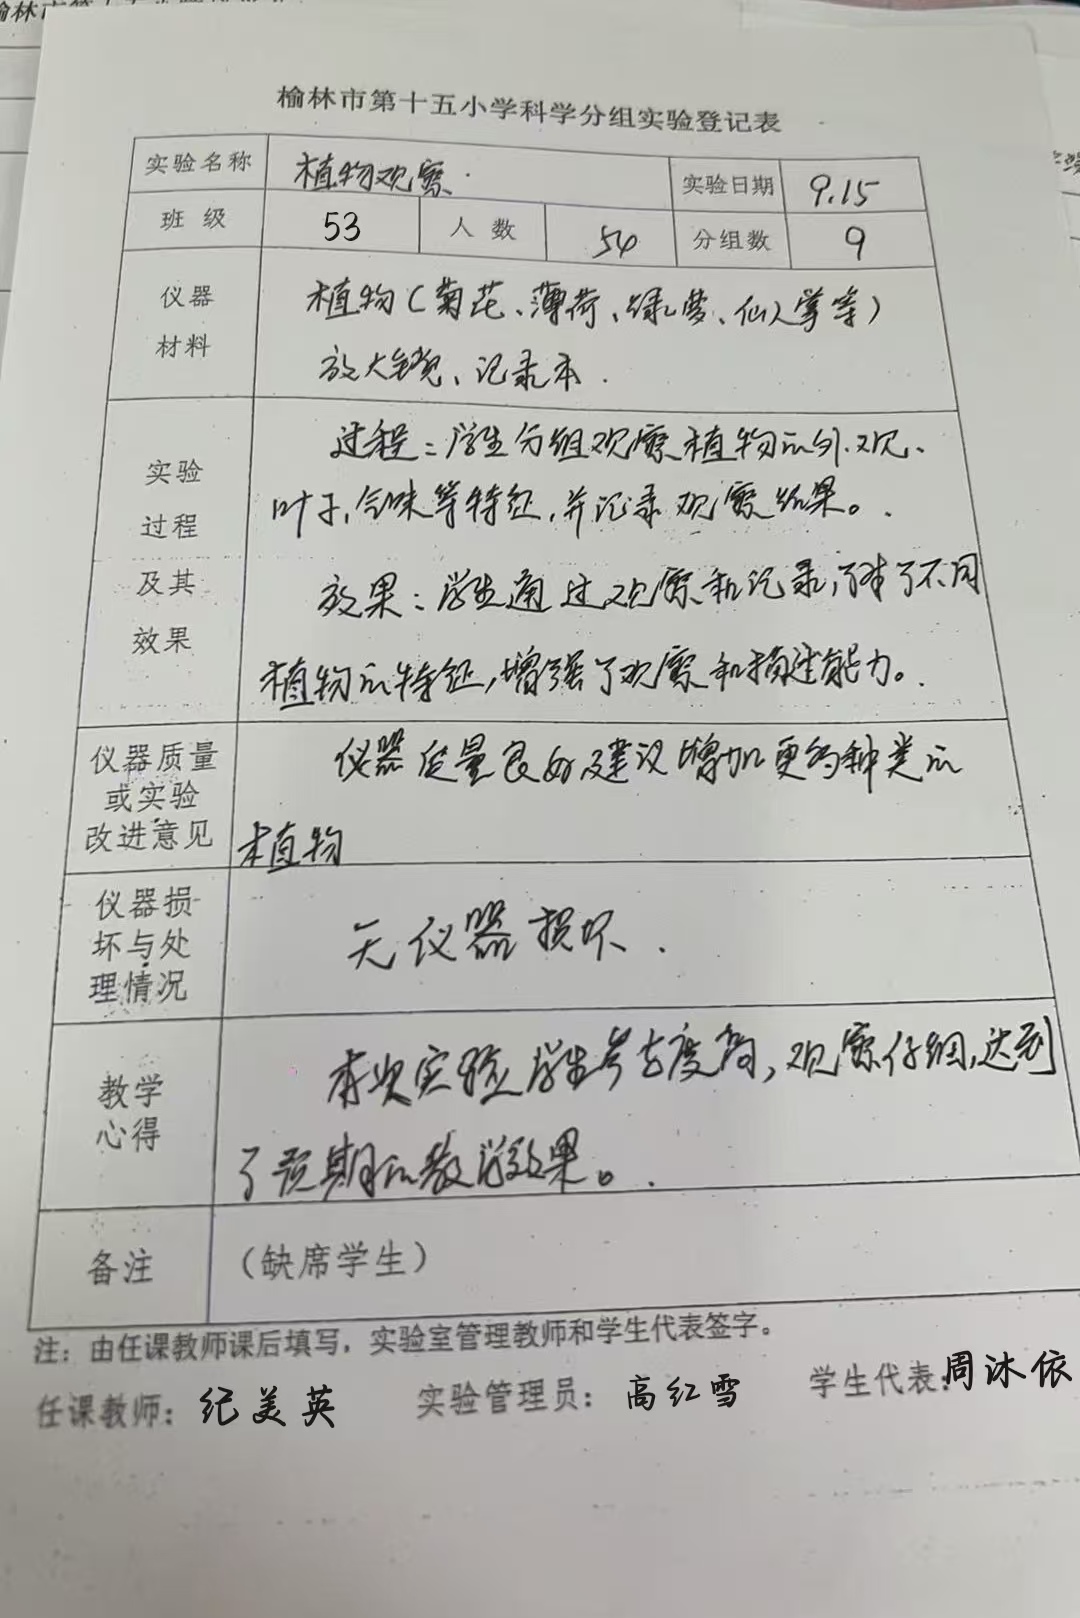 榆林市第十五小学科学分组实验登记表
实验名称 植物观察. 实验日期 9.15
班 级 53 人 数 54 分组数 9
仪器
材料
植物(菊花、薄荷、绿萝、仙人掌等)
放大镜、记录本.
实验
过程
及其
效果
过程:学生分组观察植物的外观、
叶子,气味等特征,并记录观察结果。.
效果:学生通过观察和记录,了解了不同
植物的特征,增强了观察和描述能力。.
仪器质量
或实验
改进意见
仪器质量良好建议增加更多种类的
植物
仪器损
坏与处
理情况
无仪器损坏.
教学
心得
本次实验学生参与度高,观察仔细,达到
了预期的教学效果。.
备注 (缺席学生)
注:由任课教师课后填写,实验室管理教师和学生代表签字。
任课教师:纪美英 实验管理员:高红雪 学生代表:周沐依